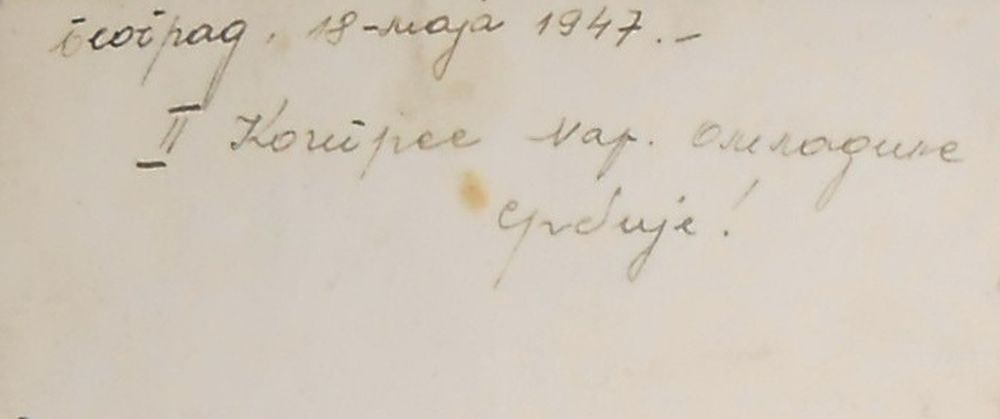 Београд. 18-маја 1947.-
II Конгрес Нар. Омладине
Србије!